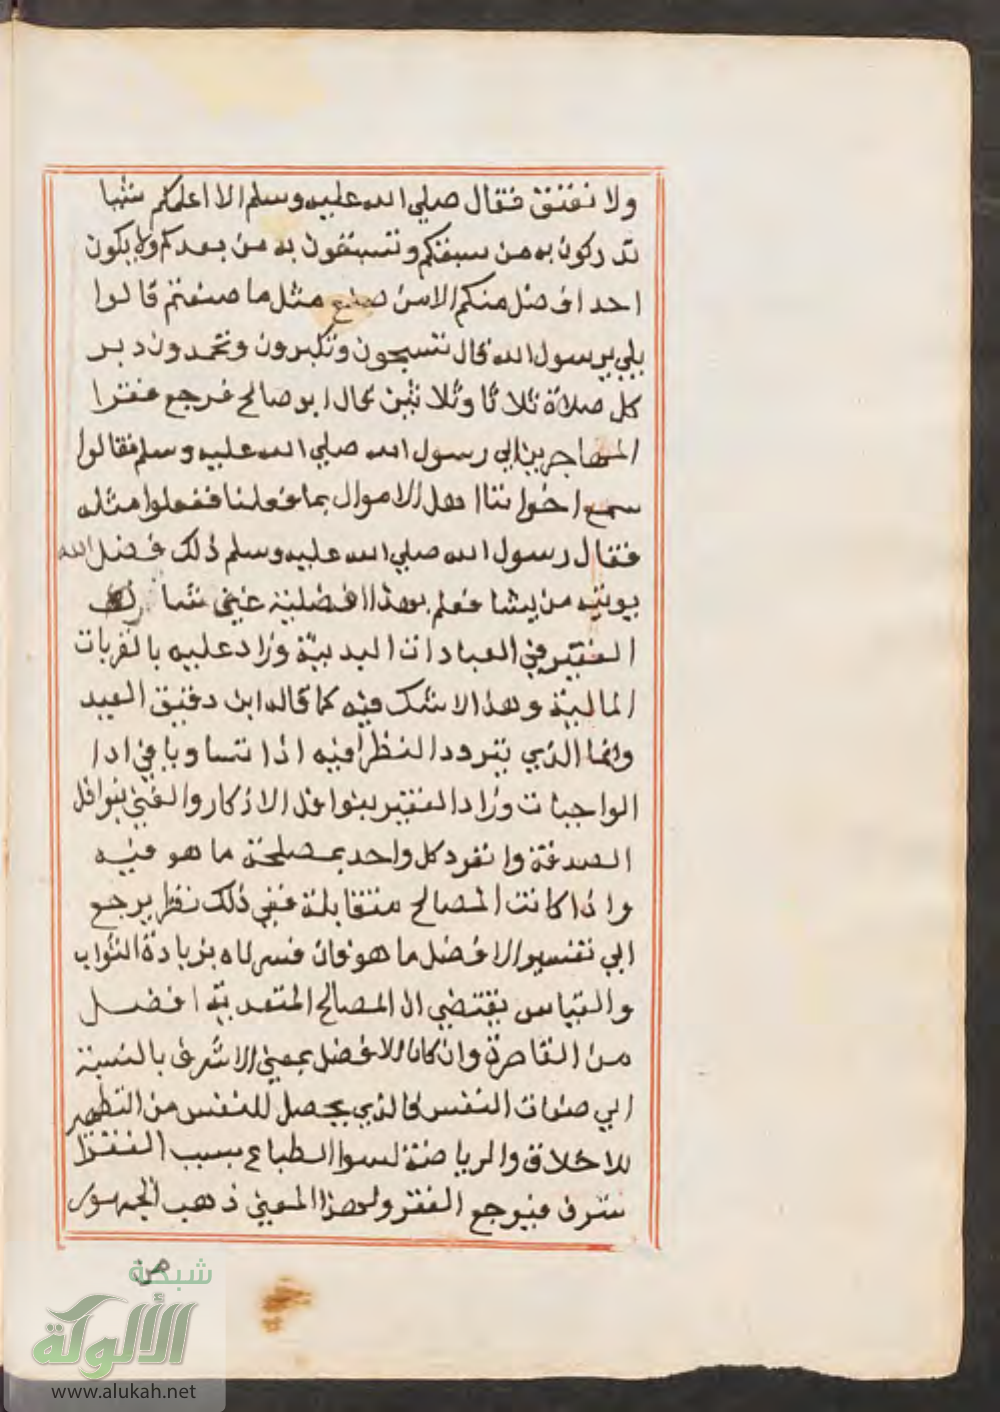 ولا نعتق فقال صلي الله عليه وسلم الا اعلمكم شيا
تدركون به من سبقكم وتسبقون به من بعدكم ولا يكون
احد افضل منكم الا من صنع مثل ما صنعتم قالوا
بلي يرسول الله قال تسبحون وتكبرون وتحمدون دبر
كل صلاة ثلاثا وثلاثين قال ابو صالح فرجع فقرا
المهاجرين الي رسول الله صلي الله عليه وسلم فقالوا
سمع اخواننا اهل الاموال بما فعلنا ففعلوا مثله
فقال رسول الله صلي الله عليه وسلم ذلك فضل الله
يوتيه من يشا فعلم بهذا افضلية غني شارك
الفقير في العبادات البدنية وزاد عليه بالقربات
المالية وهذا لا شك فيه كما قاله ابن دقيق العيد
وانما الذي يتردد النظر فيه اذا تساويا في ادا
الواجبات وزاد الفقير بنوافل الاذكار والغني بنوافل
الصدقة وانفرد كل واحد بمصلحة ما هو فيه
واذا كانت المصالح متقابلة ففي ذلك نظر يرجع
الي تفسير الافضل ما هو فان فسرناه بزيادة الثواب
والقياس يقتضي ان المصالح المتعدية افضل
من القاصرة وان كان الافضل بمعني الاشرف بالنسبة
الي صفات النفس فالذي يحصل للنفس من التطهير
للاخلاق والرياضة لسوا الطباع بسبب الفقر ا
شرف فيرجع الفقر ولهذا المعني ذهب الجمهور
من
شبكة
الألوكة
www.alukah.net